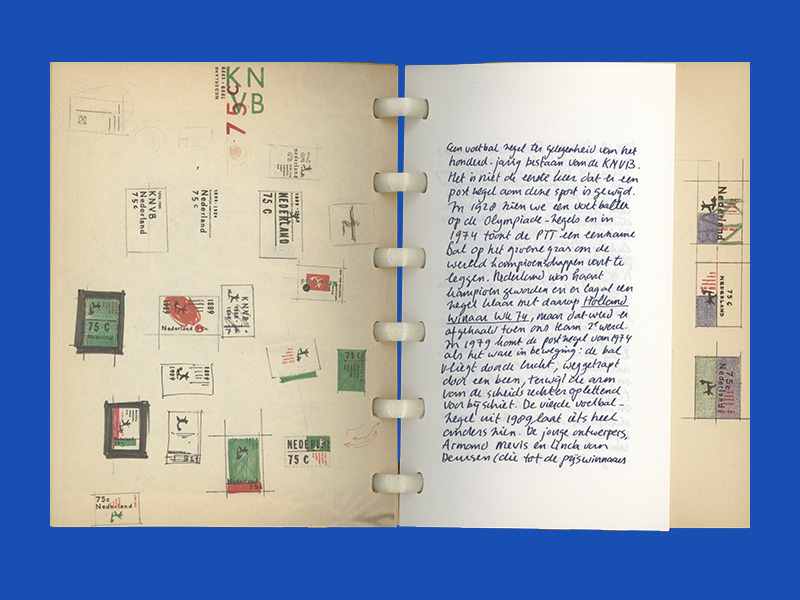 KN
VB
75c
NEDERLAND
1889-1989
KNVB
Nederland
75c
Nederland
75c
1889-1989
NEDERLAND
75 C
75 C
1889
Nederland
KNVB
1889
75 C
NEDERLAND
75 C
75c
Nederland
Een voetbal zegel ter gelegenheid van het
honderd-jarig bestaan van de KNVB.
Het is niet de eerste keer dat er een
postzegel aan deze sport is gewijd.
In 1928 zien we een voetballer
op de Olympiade-zegels en in
1974 toont de PTT een eenzame
bal op het groene gras om de
wereld kampioenschappen vast te
leggen. Nederland was haast
kampioen geworden en er lag al een
zegel klaar met daarop Holland
winaar WK 74, maar dat werd er
afgehaald toen ons team 2e werd.
In 1979 komt de postzegel van 1974
als het ware in beweging: de bal
vliegt door de lucht, weggetrapt
door een been, terwijl de arm
van de scheidsrechter oplettend
voorbij schiet. De vierde voetbal-
zegel uit 1989 laat iets heel
anders zien. De jonge ontwerpers,
Armand Mevis en Linda van
Deursen (die tot de prijswinnaars
Nederland
75c
NEDERLAND
75c
Nederland